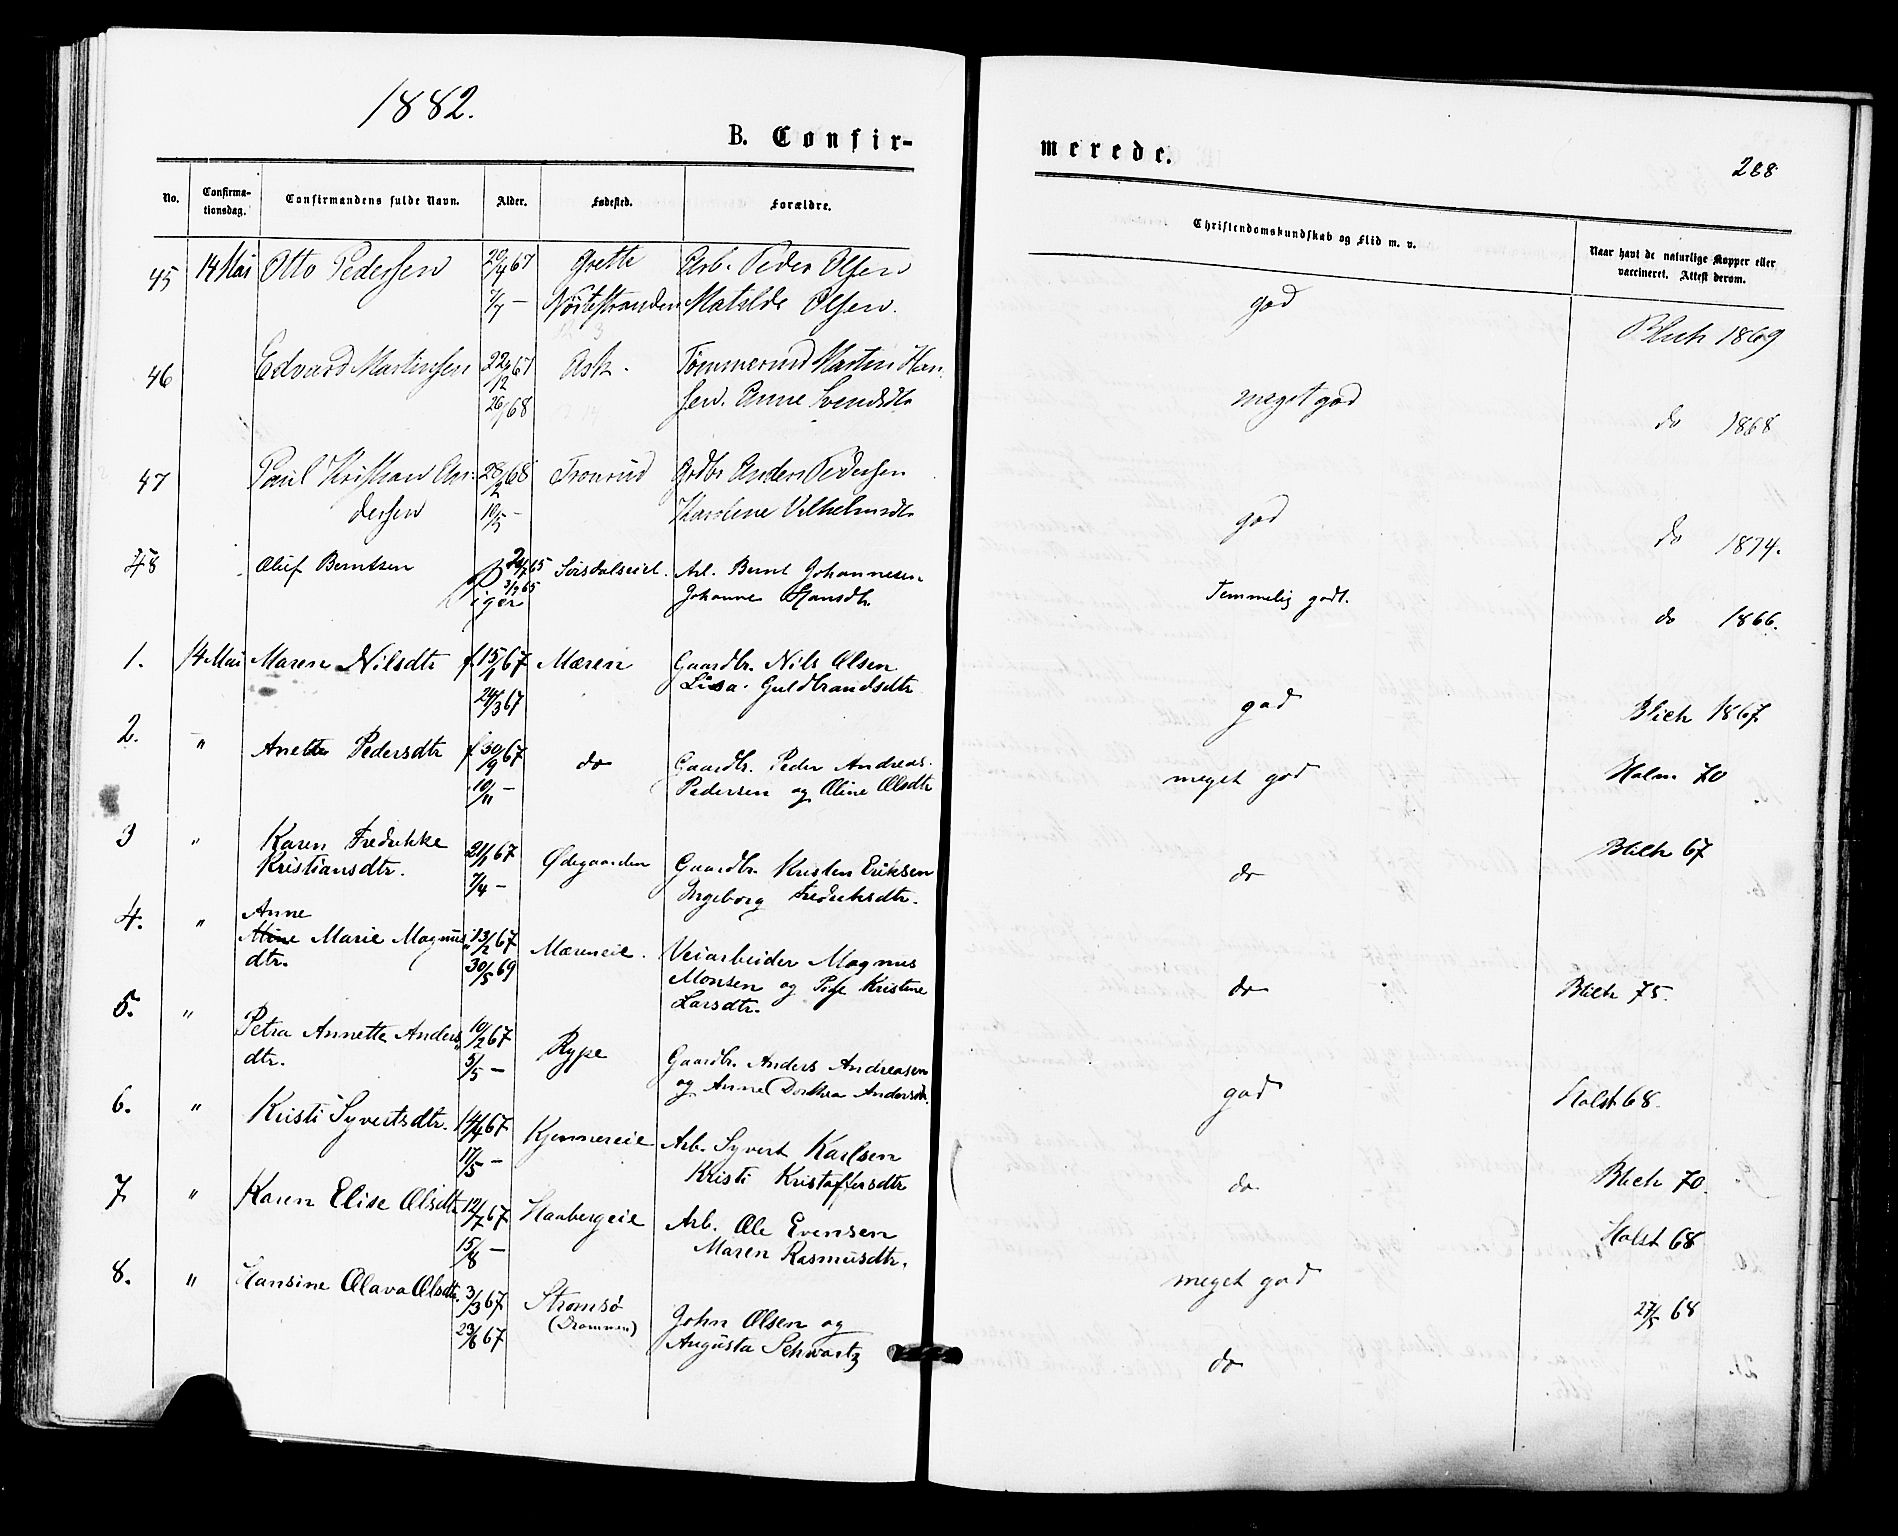 1882.
B. Confir-
merede.
288
No.
Confirma-
tionsdag.
Confirmandens fulde Navn.
Alder.
Fødested.
Forældre.
Christendomskundskab og Flid m. v.
Naar havt de naturlige Kopper eller
vaccineret. Attest derom.
45 14 Mai Otto Pedersen 20/4 67 Grette Arb. Peder Olsen
7/7 — Matilde Olsen.
god Blich 1869
46 Edvard Martinsen 22/12 67 Ask. Tømmermd Martin Han
26/1 68 sen. Anne Svendsdtr
meget god do 1868
47 Paul Kristian An- 28/2 68 Tronrud Grdbr Anders Pedersen
dersen 10/5 — Karoline Vilhelmsdtr
god do 1874.
48 Oluf Berntsen 65 Arb. Bernt Johannesen
65 Johanne Hansdtr.
Temmelig godt. do 1866.
Piger
1. 14 Mai Maren Nilsdtr f. 15/1 67 Mæren Gaardbr. Nils Olsen
24/3 67 Lisa Guldbrandsdtr
god Blich 1867
2. " Anette Pedersdtr f. 30/9 67 do Gaardbr. Peder Andreas
10/11 — Pedersen og Oline Olsdtr
meget god Holm 70
3 " Karen Fredrikke 21/1 67 Ødegaarden Gaardbr. Kristen Eriksen
Kristiansdtr. 7/4 — Ingeborg Fredriksdtr.
do Blich 67
4. " Anne
Marie Magnus 13/2 67 Mæreneie. Veiarbeider Magnus
dtr. 30/5 69 Monsen og Kristine
Larsdtr.
do Blich 75.
5. " Petra Annette Anders 10/2 67 Rype Gaardbr. Anders Andreasen
dtr. 5/5 — og Anne Dorthea Andersdtr.
god Holst 68.
6. " Kristi Syvertsdtr. 14/4 67 Kjemnereie Arb. Syvert Karlsen
17/5 — Kristi Kristoffersdtr
do Blich 70.
7 " Karen Elise Olsdtr 12/7 67 Haabergeie Arb. Ole Evensen
15/8 — Maren Rasmusdtr.
meget god Holst 68
8. " Hansine Olava Olsdtr. 3/3 67 Strømsø John Olsen og
23/6 67 (Drammen) Augusta Schwartz
do 27/5 68